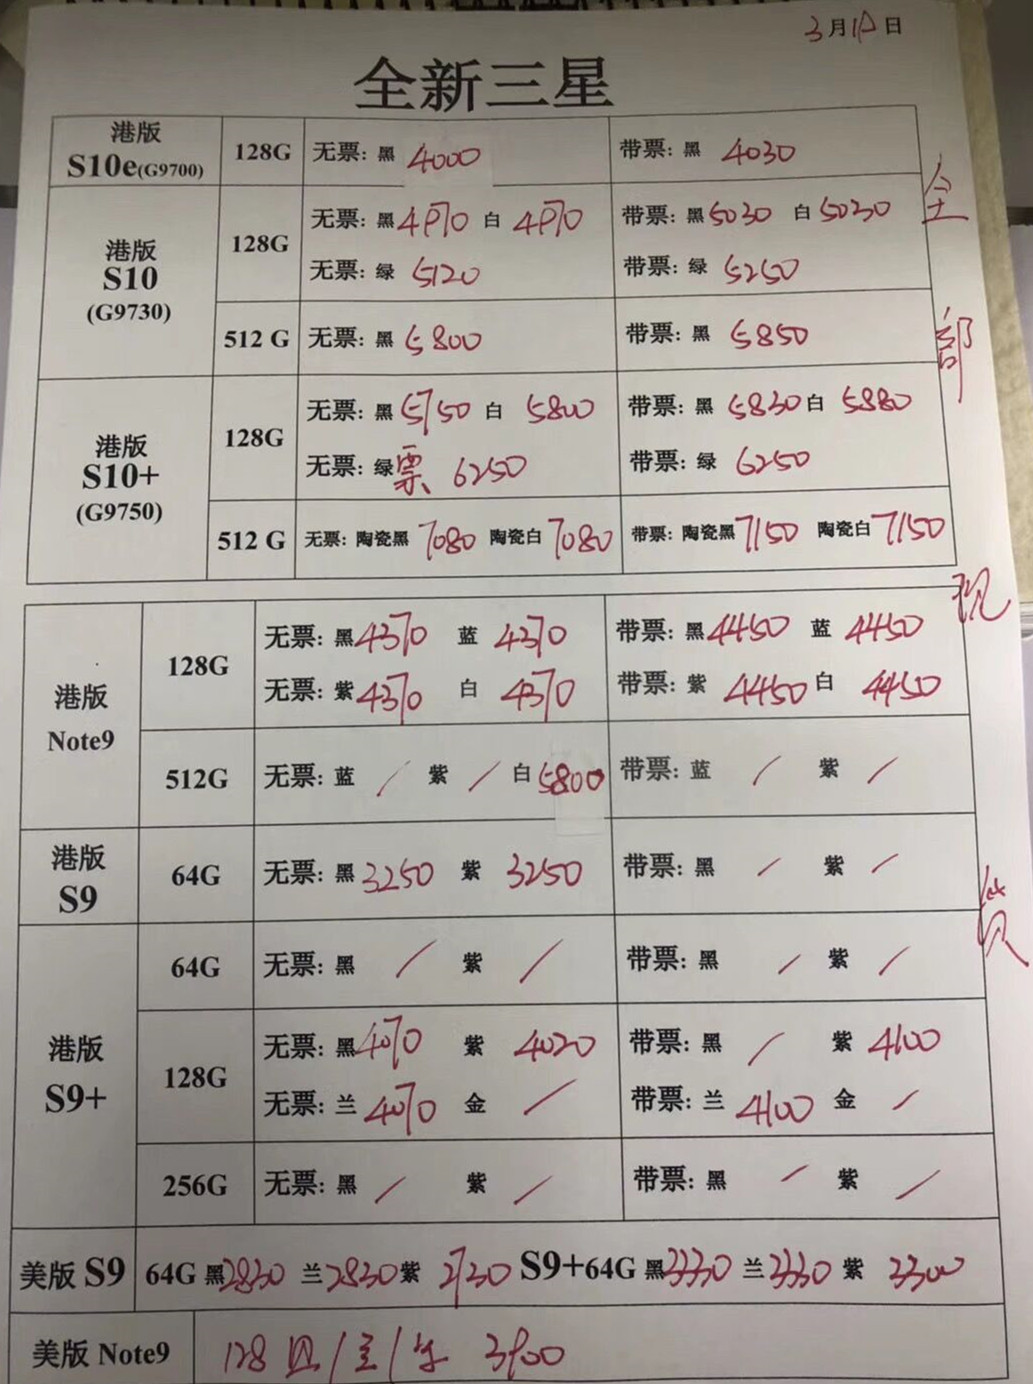 3月1日
全新三星
港版 S10e(G9700) 128G 无票: 黑 4000 带票: 黑 4030
港版 S10 (G9730) 128G 无票: 黑 4970 白 4970 带票: 黑 5030 白 5030
无票: 绿 5120 带票: 绿 5250
512 G 无票: 黑 5800 带票: 黑 5850
港版 S10+ (G9750) 128G 无票: 黑 5750 白 5800 带票: 黑 5830 白 5880
无票: 绿 票 6250 带票: 绿 6250
512 G 无票: 陶瓷黑 7080 陶瓷白 7080 带票: 陶瓷黑 7150 陶瓷白 7150
港版 Note9 128G 无票: 黑 4370 蓝 4370 带票: 黑 4450 蓝 4450
无票: 紫 4370 白 4370 带票: 紫 4450 白 4450
512G 无票: 蓝 / 紫 / 白 5800 带票: 蓝 / 紫 /
港版 S9 64G 无票: 黑 3250 紫 3250 带票: 黑 / 紫 /
港版 S9+ 64G 无票: 黑 / 紫 / 带票: 黑 / 紫 /
128G 无票: 黑 4070 紫 4020 带票: 黑 / 紫 4100
无票: 兰 4070 金 / 带票: 兰 4100 金 /
256G 无票: 黑 / 紫 / 带票: 黑 / 紫 /
美版 S9 64G 黑 2830 兰 2830 紫 2730 S9+64G 黑 3330 兰 3330 紫 3300
美版 Note9 128 / / 3900
全部现货